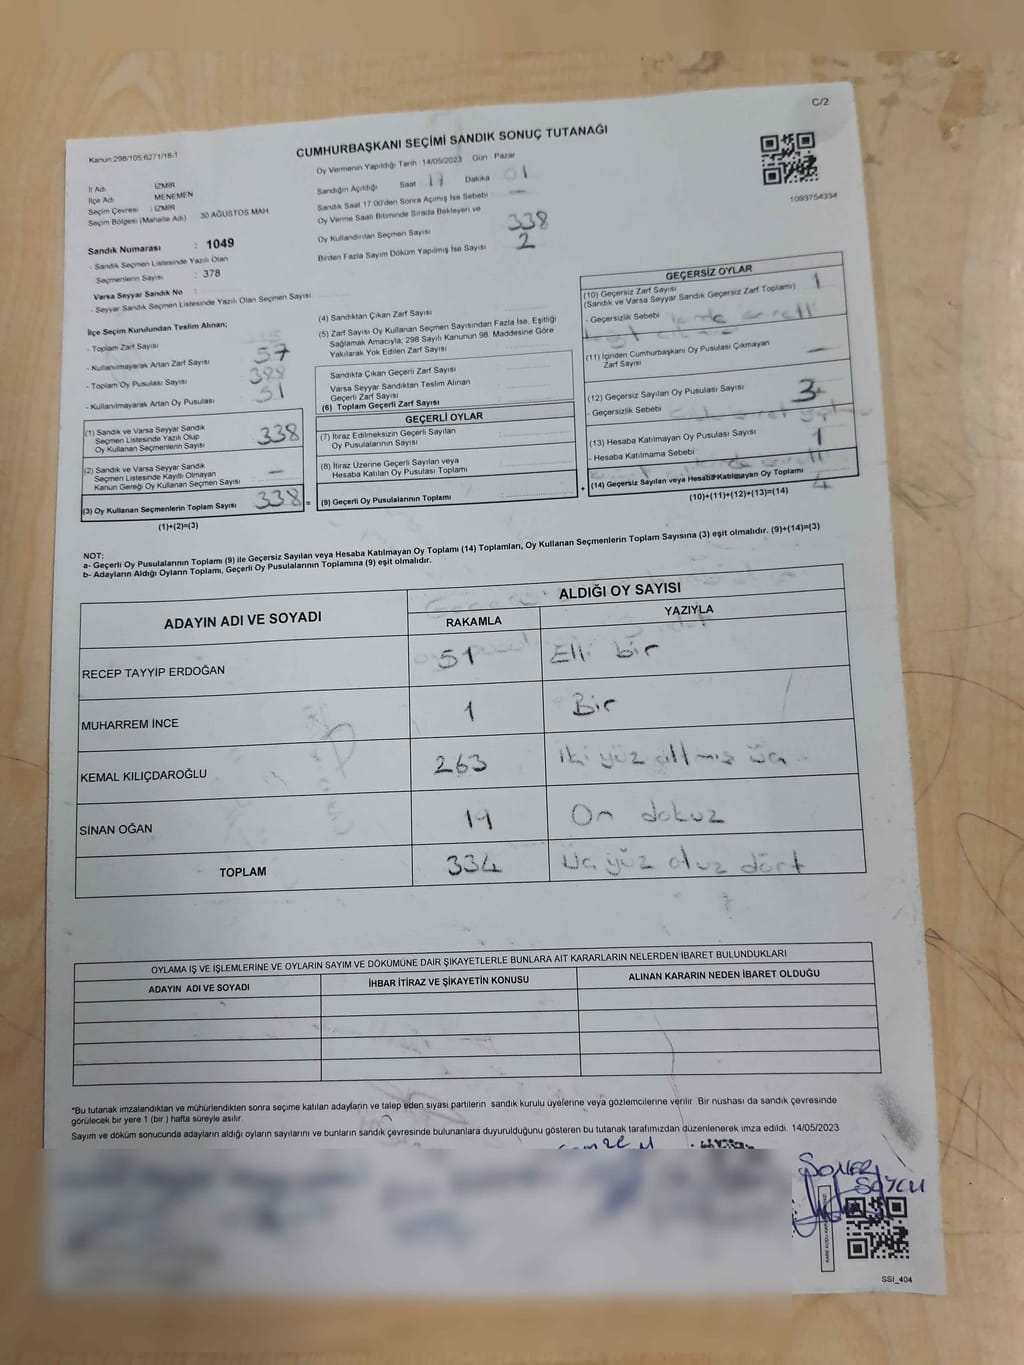 C/2
Kanun:298/105,6271/18-1
CUMHURBAŞKANI SEÇİMİ SANDIK SONUÇ TUTANAĞI
1093754334
İl Adı İZMİR
İlçe Adı MENEMEN
Seçim Çevresi : İZMİR
Seçim Bölgesi (Mahalle Adı) 30 AĞUSTOS MAH
Sandık Numarası : 1049
- Sandık Seçmen Listesinde Yazılı Olan
Seçmenlerin Sayısı : 378
Varsa Seyyar Sandık No :
- Seyyar Sandık Seçmen Listesinde Yazılı Olan Seçmen Sayısı
Oy Vermenin Yapıldığı Tarih 14/05/2023 Gün Pazar
Sandığın Açıldığı Saat 17 Dakika 01
Sandık Saat 17:00'den Sonra Açılmış İse Sebebi —
Oy Verme Saati Bitiminde Sırada Bekleyen ve
Oy Kullandırılan Seçmen Sayısı 338
Birden Fazla Sayım Döküm Yapılmış İse Sayısı 2
İlçe Seçim Kurulundan Teslim Alınan;
- Toplam Zarf Sayısı
- Kullanılmayarak Artan Zarf Sayısı 57
- Toplam Oy Pusulası Sayısı
- Kullanılmayarak Artan Oy Pusulası 51
(1) Sandık ve Varsa Seyyar Sandık
Seçmen Listesinde Yazılı Olup
Oy Kullanan Seçmenlerin Sayısı 338
(2) Sandık ve Varsa Seyyar Sandık
Seçmen Listesinde Kayıtlı Olmayan
Kanun Gereği Oy Kullanan Seçmen Sayısı —
(3) Oy Kullanan Seçmenlerin Toplam Sayısı 338 =
(1)+(2)=(3)
(4) Sandıktan Çıkan Zarf Sayısı
(5) Zarf Sayısı Oy Kullanan Seçmen Sayısından Fazla İse, Eşitliği
Sağlamak Amacıyla, 298 Sayılı Kanunun 98. Maddesine Göre
Yakılarak Yok Edilen Zarf Sayısı
Sandıkta Çıkan Geçerli Zarf Sayısı
Varsa Seyyar Sandıktan Teslim Alınan
Geçerli Zarf Sayısı
(6) Toplam Geçerli Zarf Sayısı
GEÇERLİ OYLAR
(7) İtiraz Edilmeksizin Geçerli Sayılan
Oy Pusulalarının Sayısı
(8) İtiraz Üzerine Geçerli Sayılan veya
Hesaba Katılan Oy Pusulası Toplamı
(9) Geçerli Oy Pusulalarının Toplamı +
GEÇERSİZ OYLAR
(10) Geçersiz Zarf Sayısı
(Sandık ve Varsa Seyyar Sandık Geçersiz Zarf Toplamı) 1
- Geçersizlik Sebebi
(11) İçinden Cumhurbaşkanı Oy Pusulası Çıkmayan
Zarf Sayısı —
(12) Geçersiz Sayılan Oy Pusulası Sayısı 3
- Geçersizlik Sebebi
(13) Hesaba Katılmayan Oy Pusulası Sayısı 1
- Hesaba Katılmama Sebebi
(14) Geçersiz Sayılan veya Hesaba Katılmayan Oy Toplamı 4
(10)+(11)+(12)+(13)=(14)
NOT:
a- Geçerli Oy Pusulalarının Toplamı (9) ile Geçersiz Sayılan veya Hesaba Katılmayan Oy Toplamı (14) Toplamları, Oy Kullanan Seçmenlerin Toplam Sayısına (3) eşit olmalıdır. (9)+(14)=(3)
b- Adayların Aldığı Oyların Toplamı, Geçerli Oy Pusulalarının Toplamına (9) eşit olmalıdır.
ADAYIN ADI VE SOYADI ALDIĞI OY SAYISI
RAKAMLA YAZIYLA
RECEP TAYYİP ERDOĞAN 51 Elli bir
MUHARREM İNCE 1 Bir
KEMAL KILIÇDAROĞLU 263 İki yüz altmış üç
SİNAN OĞAN 19 On dokuz
TOPLAM 334 Üç yüz otuz dört
OYLAMA İŞ VE İŞLEMLERİNE VE OYLARIN SAYIM VE DÖKÜMÜNE DAİR ŞİKAYETLERLE BUNLARA AİT KARARLARIN NELERDEN İBARET BULUNDUKLARI
ADAYIN ADI VE SOYADI İHBAR İTİRAZ VE ŞİKAYETİN KONUSU ALINAN KARARIN NEDEN İBARET OLDUĞU
*Bu tutanak imzalandıktan ve mühürlendikten sonra seçime katılan adayların ve talep eden siyasi partilerin sandık kurulu üyelerine veya gözlemcilerine verilir. Bir nüshası da sandık çevresinde
görülecek bir yere 1 (bir) hafta süreyle asılır.
Sayım ve döküm sonucunda adayların aldığı oyların sayılarını ve bunların sandık çevresinde bulunanlara duyurulduğunu gösteren bu tutanak tarafımızdan düzenlenerek imza edildi. 14/05/2023
SONER
SOYCU
SSI_404